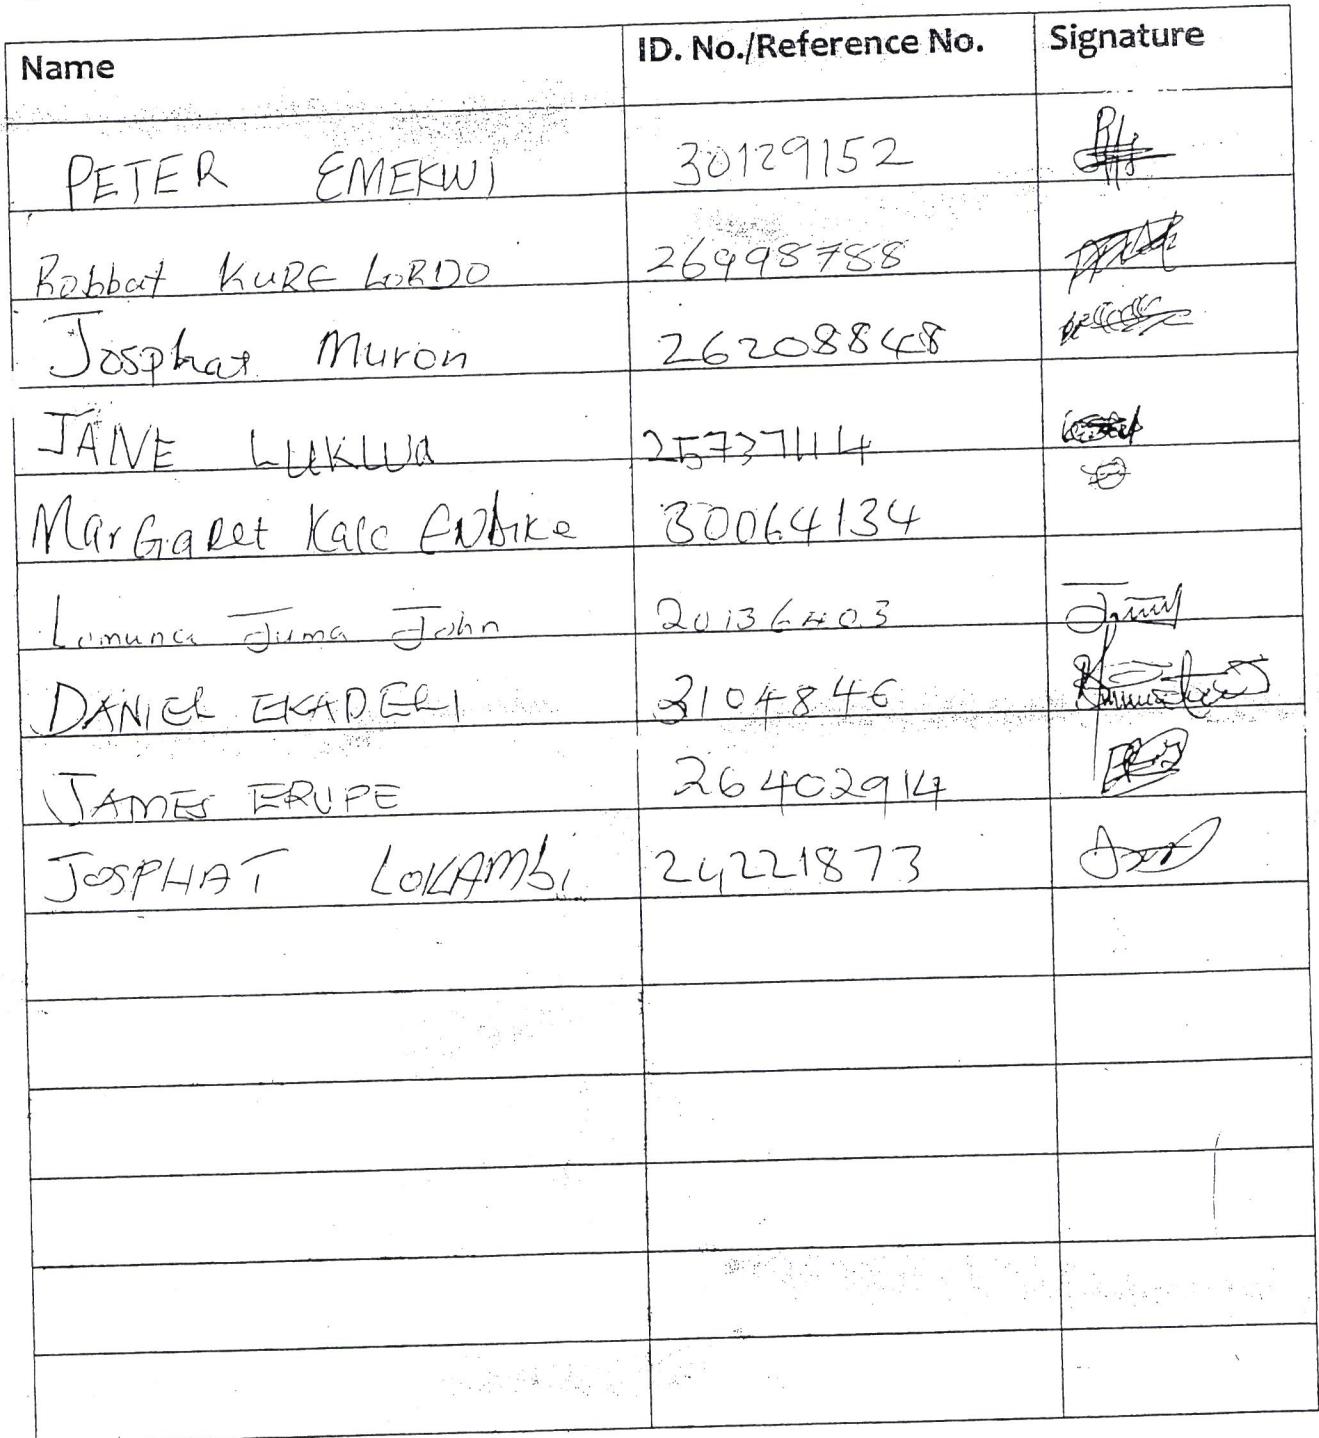 Name ID. No./Reference No. Signature
PETER EMEKWI 30129152
Robbat KURE LORDO 26998788
Josphat Muron 26208848
JANE LUKWA 25737114
MarGaRet Kale 30064134
Juma John 20136403
DANIEL EKADELI 3104846
JAMES ERUPE 26402914
JOSPHAT LOKAMbi 24221873